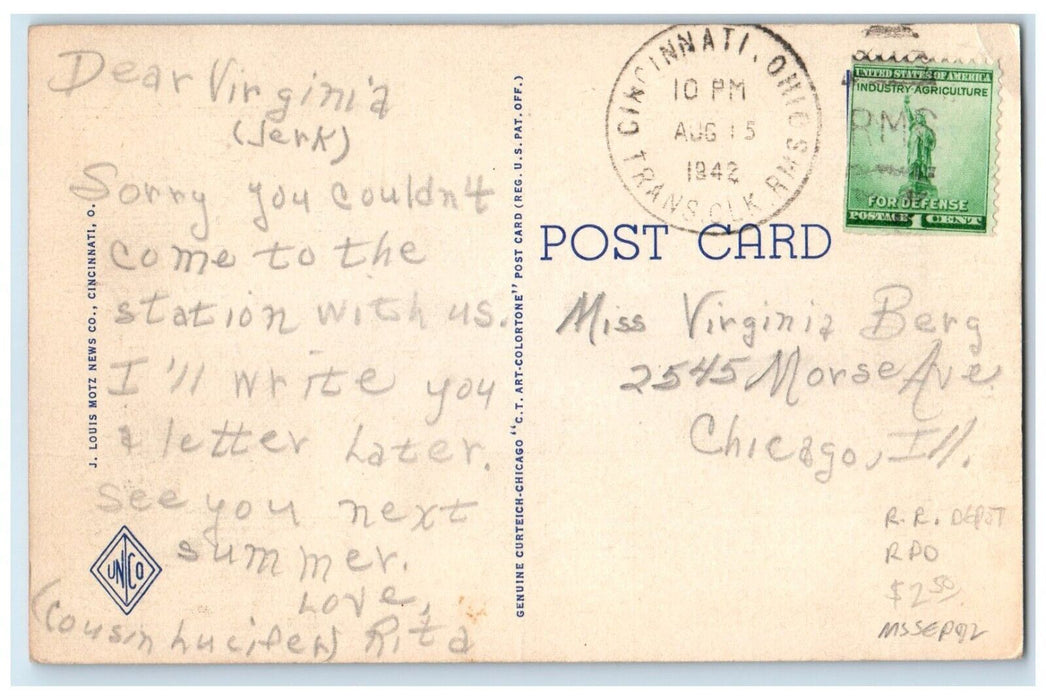 Dear Virginia
(Jerk)
Sorry you couldn't
come to the
station with us.
I'll write you
a letter Later.
See you next
summer.
Love,
(Cousin Lucifer) Rita
J. LOUIS MOTZ NEWS CO., CINCINNATI, O.
UNCO
GENUINE CURTEICH-CHICAGO "C.T. ART-COLORTONE" POST CARD (REG. U.S. PAT. OFF.)
CINCINNATI, OHIO
10 PM
AUG 15
1942
TRANS. CLK. RMS
UNITED STATES OF AMERICA
INDUSTRY AGRICULTURE
RMS
FOR DEFENSE
POSTAGE 1 CENT
POST CARD
Miss Virginia Berg
2545 Morse Ave
Chicago, Ill.
R.R. DEPOT
RPO
$2.50